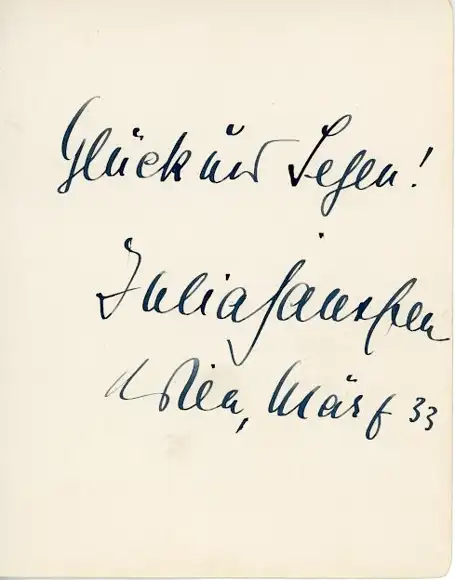 Glück und Segen!
Julia Janssen
Wien, März 33